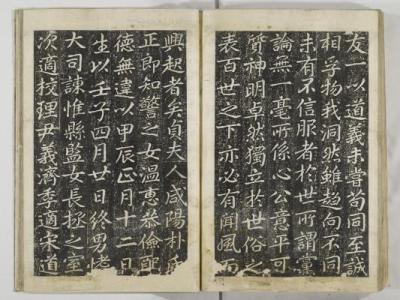 友一以道義未嘗苟同至誠
相孚物我洞然雖趍向不同
未有不信服者於世所謂黨
論無一毫所係心公意平可
質神明卓然獨立於世俗之
表百世之下亦必有聞風而
興起者矣貞夫人咸陽朴氏
正郎知警之女溫恵恭儉配
德無違以甲辰正月十二日
生以壬子四月廿日終男
大司諫惟縣監女長極之室
次適校理尹義濟季適宋道